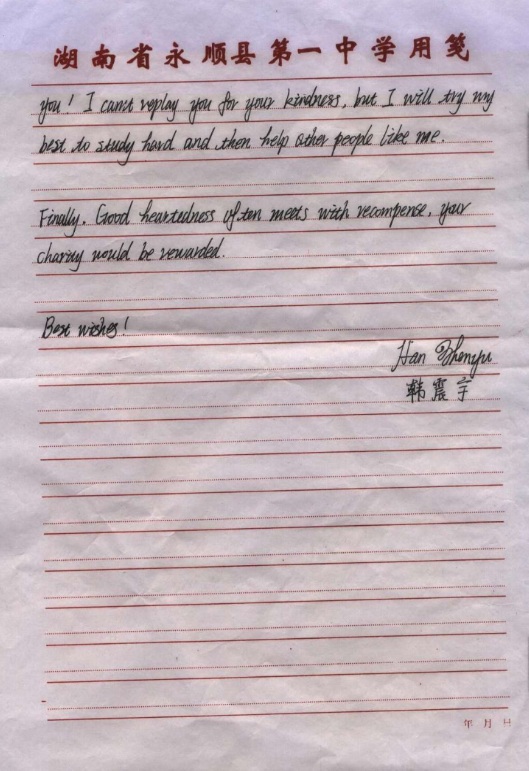 湖南省永顺县第一中学用笺
you! I can't replay you for your kindness, but I will try my
best to study hard and then help other people like me.
Finally, Good heartedness often meets with recompense, your
charity would be rewarded.
Best wishes!
Han Zhenyu
韩震宇
年 月 日